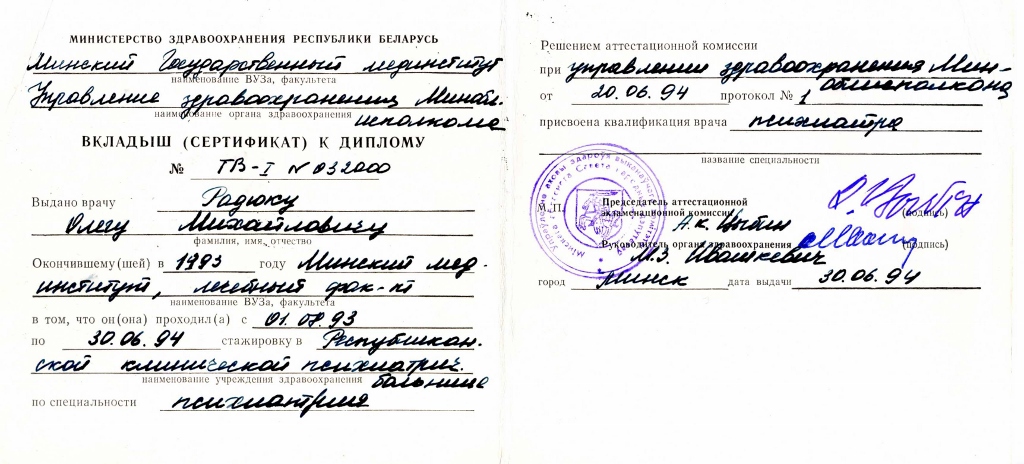 МИНИСТЕРСТВО ЗДРАВООХРАНЕНИЯ РЕСПУБЛИКИ БЕЛАРУСЬ
Минский Государственный мединститут
наименование ВУЗа, факультета
Управление здравоохранения Минобл-
наименование органа здравоохранения
исполкома
ВКЛАДЫШ (СЕРТИФИКАТ) К ДИПЛОМУ
№ ТВ-I N 032000
Выдано врачу Радюку
Олегу Михайловичу
фамилия, имя, отчество
Окончившему(шей) в 1993 году Минский мед.
институт, лечебный фак-т
наименование ВУЗа, факультета
в том, что он(она) проходил(а) с 01.08.93
по 30.06.94 стажировку в Республикан-
ской клинической психиатрич.
наименование учреждения здравоохранения
больнице
по специальности психиатрия
Решением аттестационной комиссии
при управлении здравоохранения Мин-
облисполкома
от 20.06.94 протокол № 1
присвоена квалификация врача психиатра
название специальности
М. П.
Председатель аттестационной
экзаменационной комиссии
(подпись)
А.К. Цыбин
Руководитель органа здравоохранения
(подпись)
М.З. Ивашкевич
город Минск дата выдачи 30.06.94